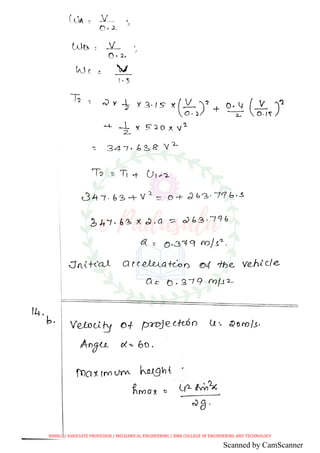 ωA = V/0.2 ;
ωB = V/0.2 ;
ωC = V/1.5
T2 = 2 x 1/2 x 3.15 x (V/0.2)² + 0.4/2 (V/0.15)²
+ 1/2 x 520 x V²
= 347.638 V²
T2 = T1 + U1-2
347.63 + V² = 0 + 263.796.s
347.63 x 2.a = 263.796
a = 0.379 m/s².
Initial acceleration of the vehicle
a = 0.379 m/s2.
14.
b. Velocity of projection u = 20m/s.
Angle α = 60.
Maximum height :
hmax = u² sin²α / 2g.
ASSOCIATE PROFESSOR / MECHANICAL ENGINEERING / COLLEGE OF ENGINEERING AND TECHNOLOGY
Scanned by CamScanner